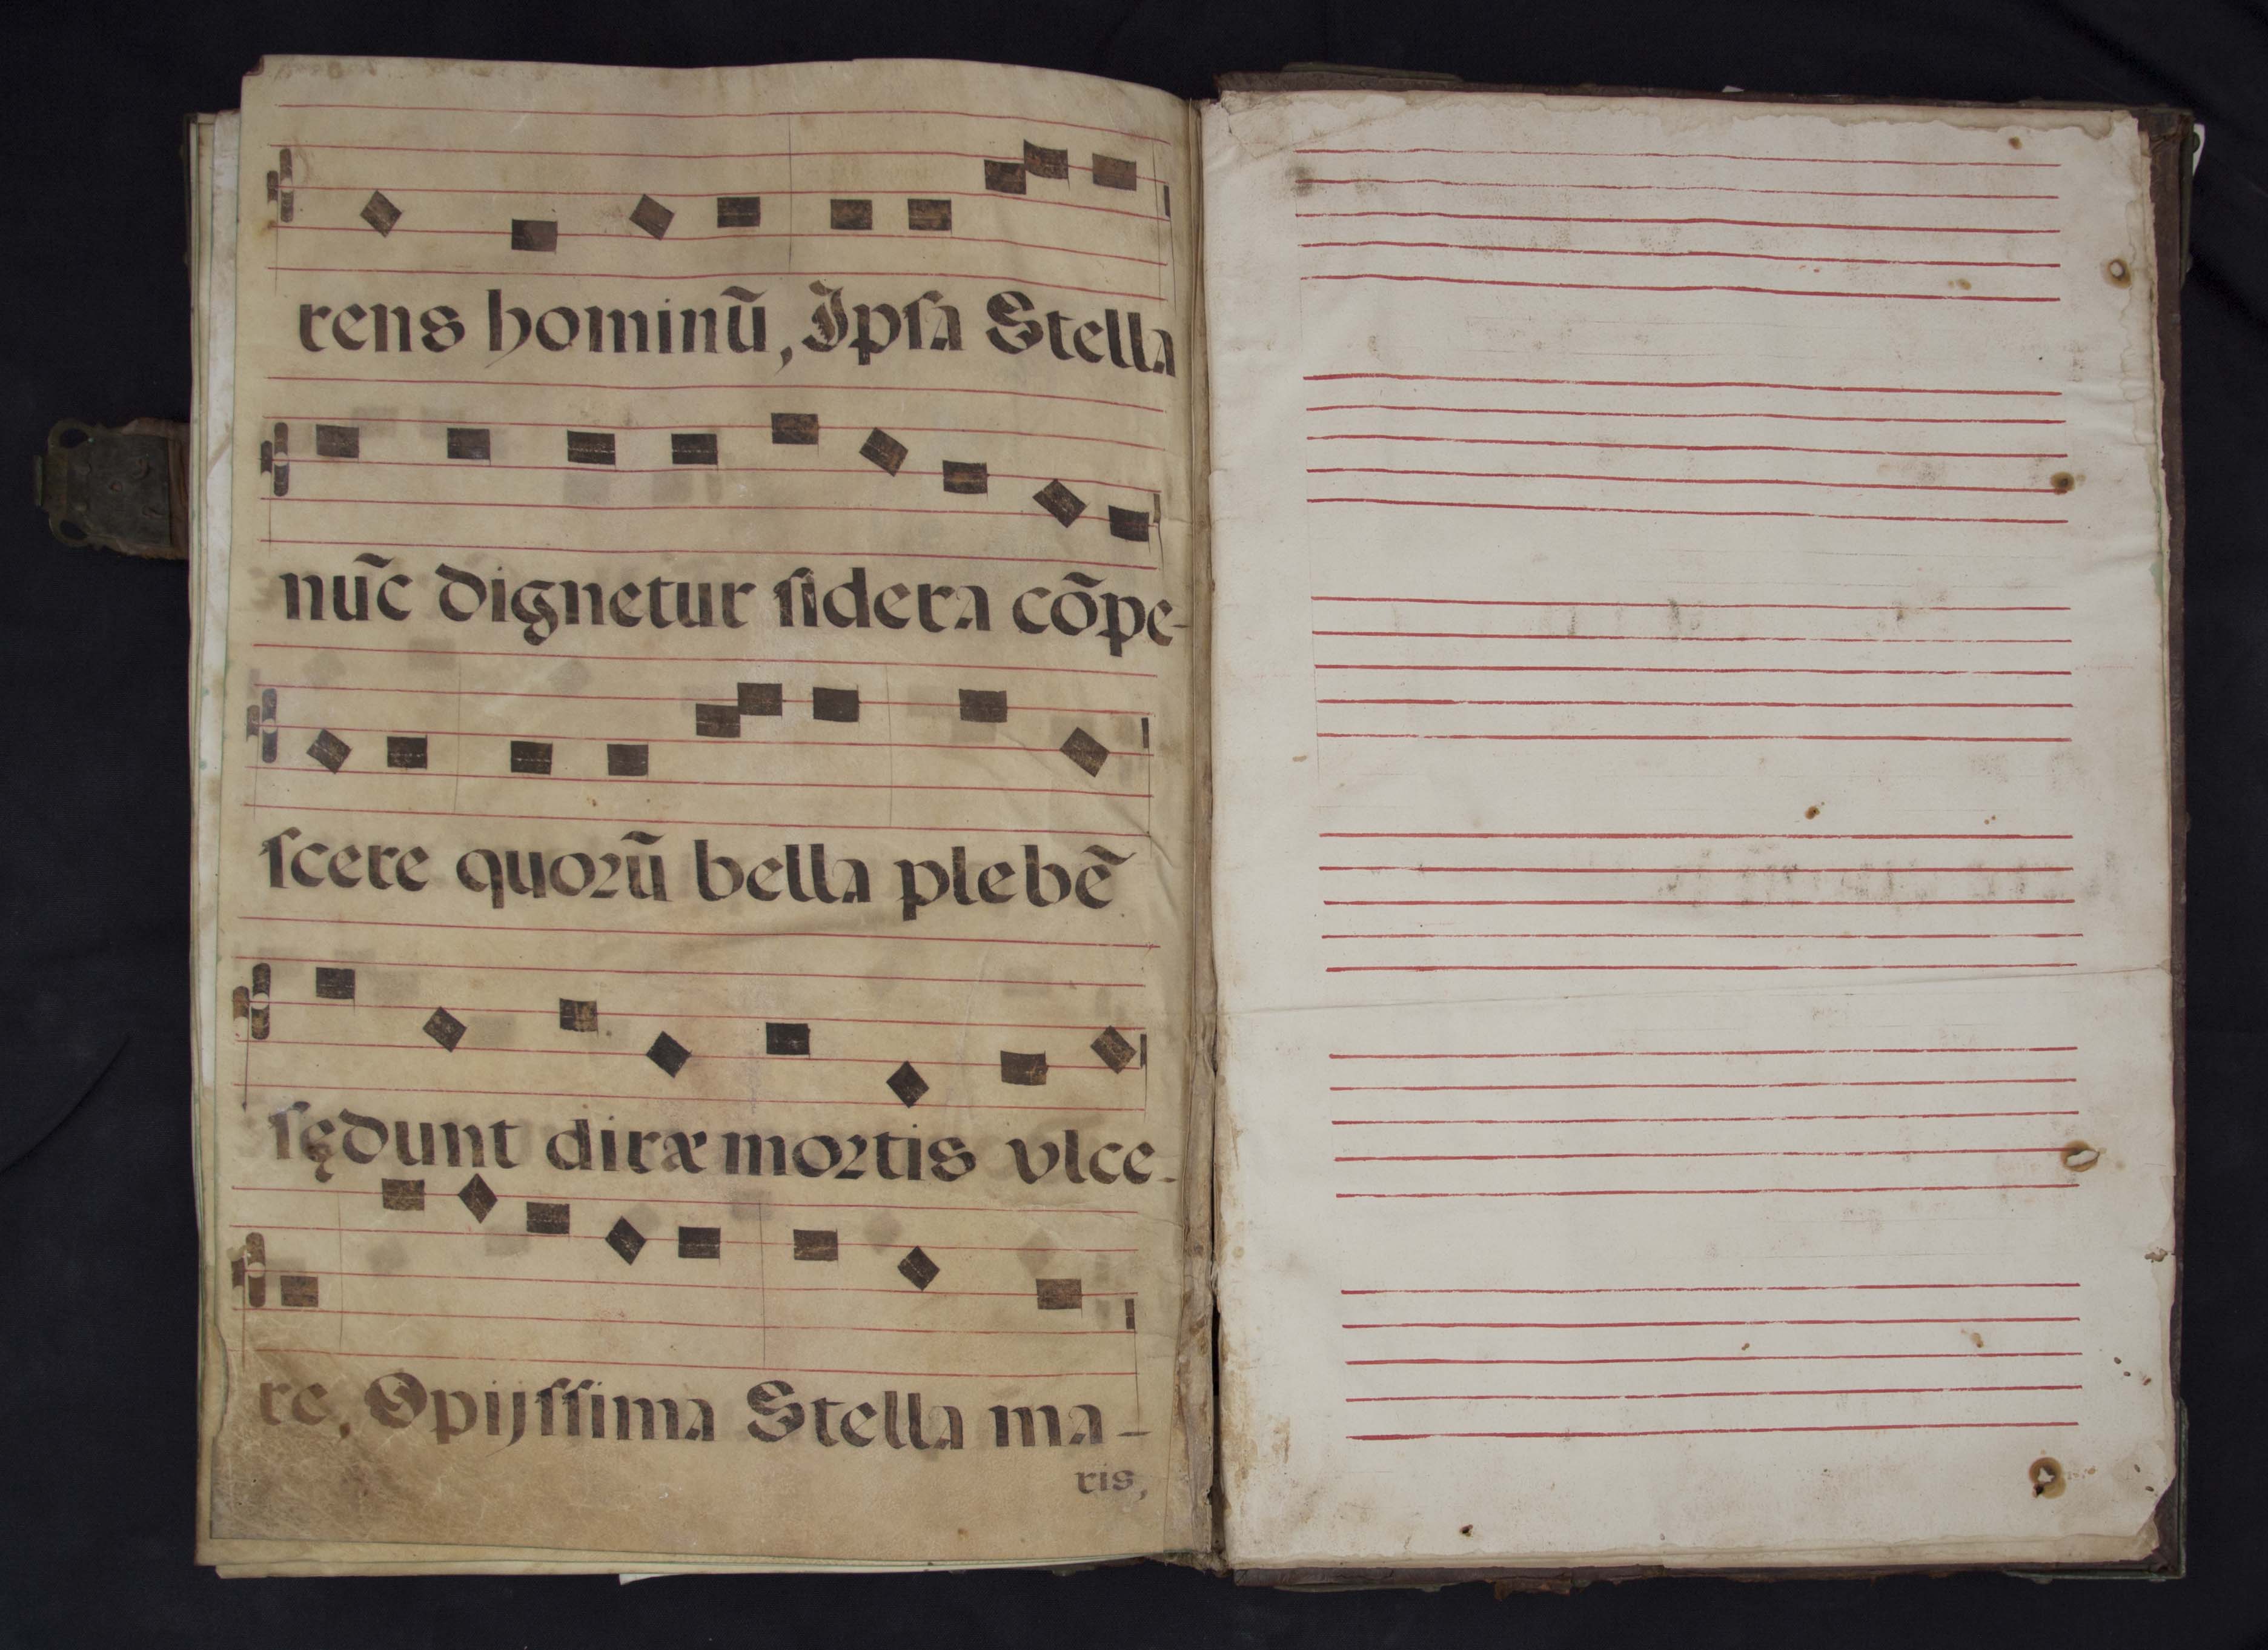 rens hominũ, Ipſa Stella
nũc dignetur ſidera cõpe-
ſcere quoꝛũ bella plebẽ
ſędunt diræ moꝛtis vlce-
re, Opijſſima Stella ma-
ris,